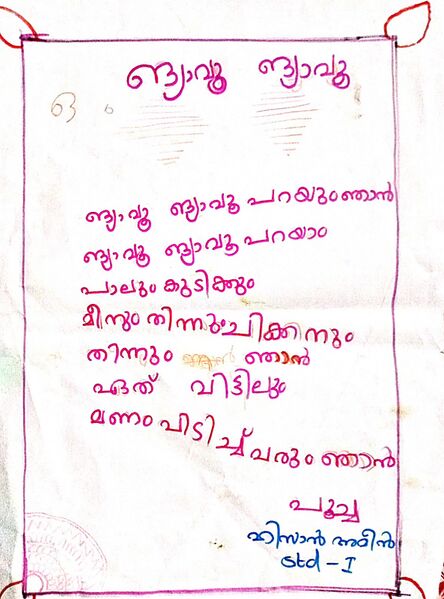 ങ്യാവൂ ങ്യാവൂ
ങ്യാവൂ ങ്യാവൂ പറയും ഞാൻ
ങ്യാവൂ ങ്യാവൂ പറയാം
പാലും കുടിക്കും
മീനും തിന്നും ചിക്കനും
തിന്നും ഞാൻ
ഏത് വിട്ടിലും
മണം പിടിച്ച് വരും ഞാൻ
പൂച്ച
ഹിസാൻ അമീൻ
std - I